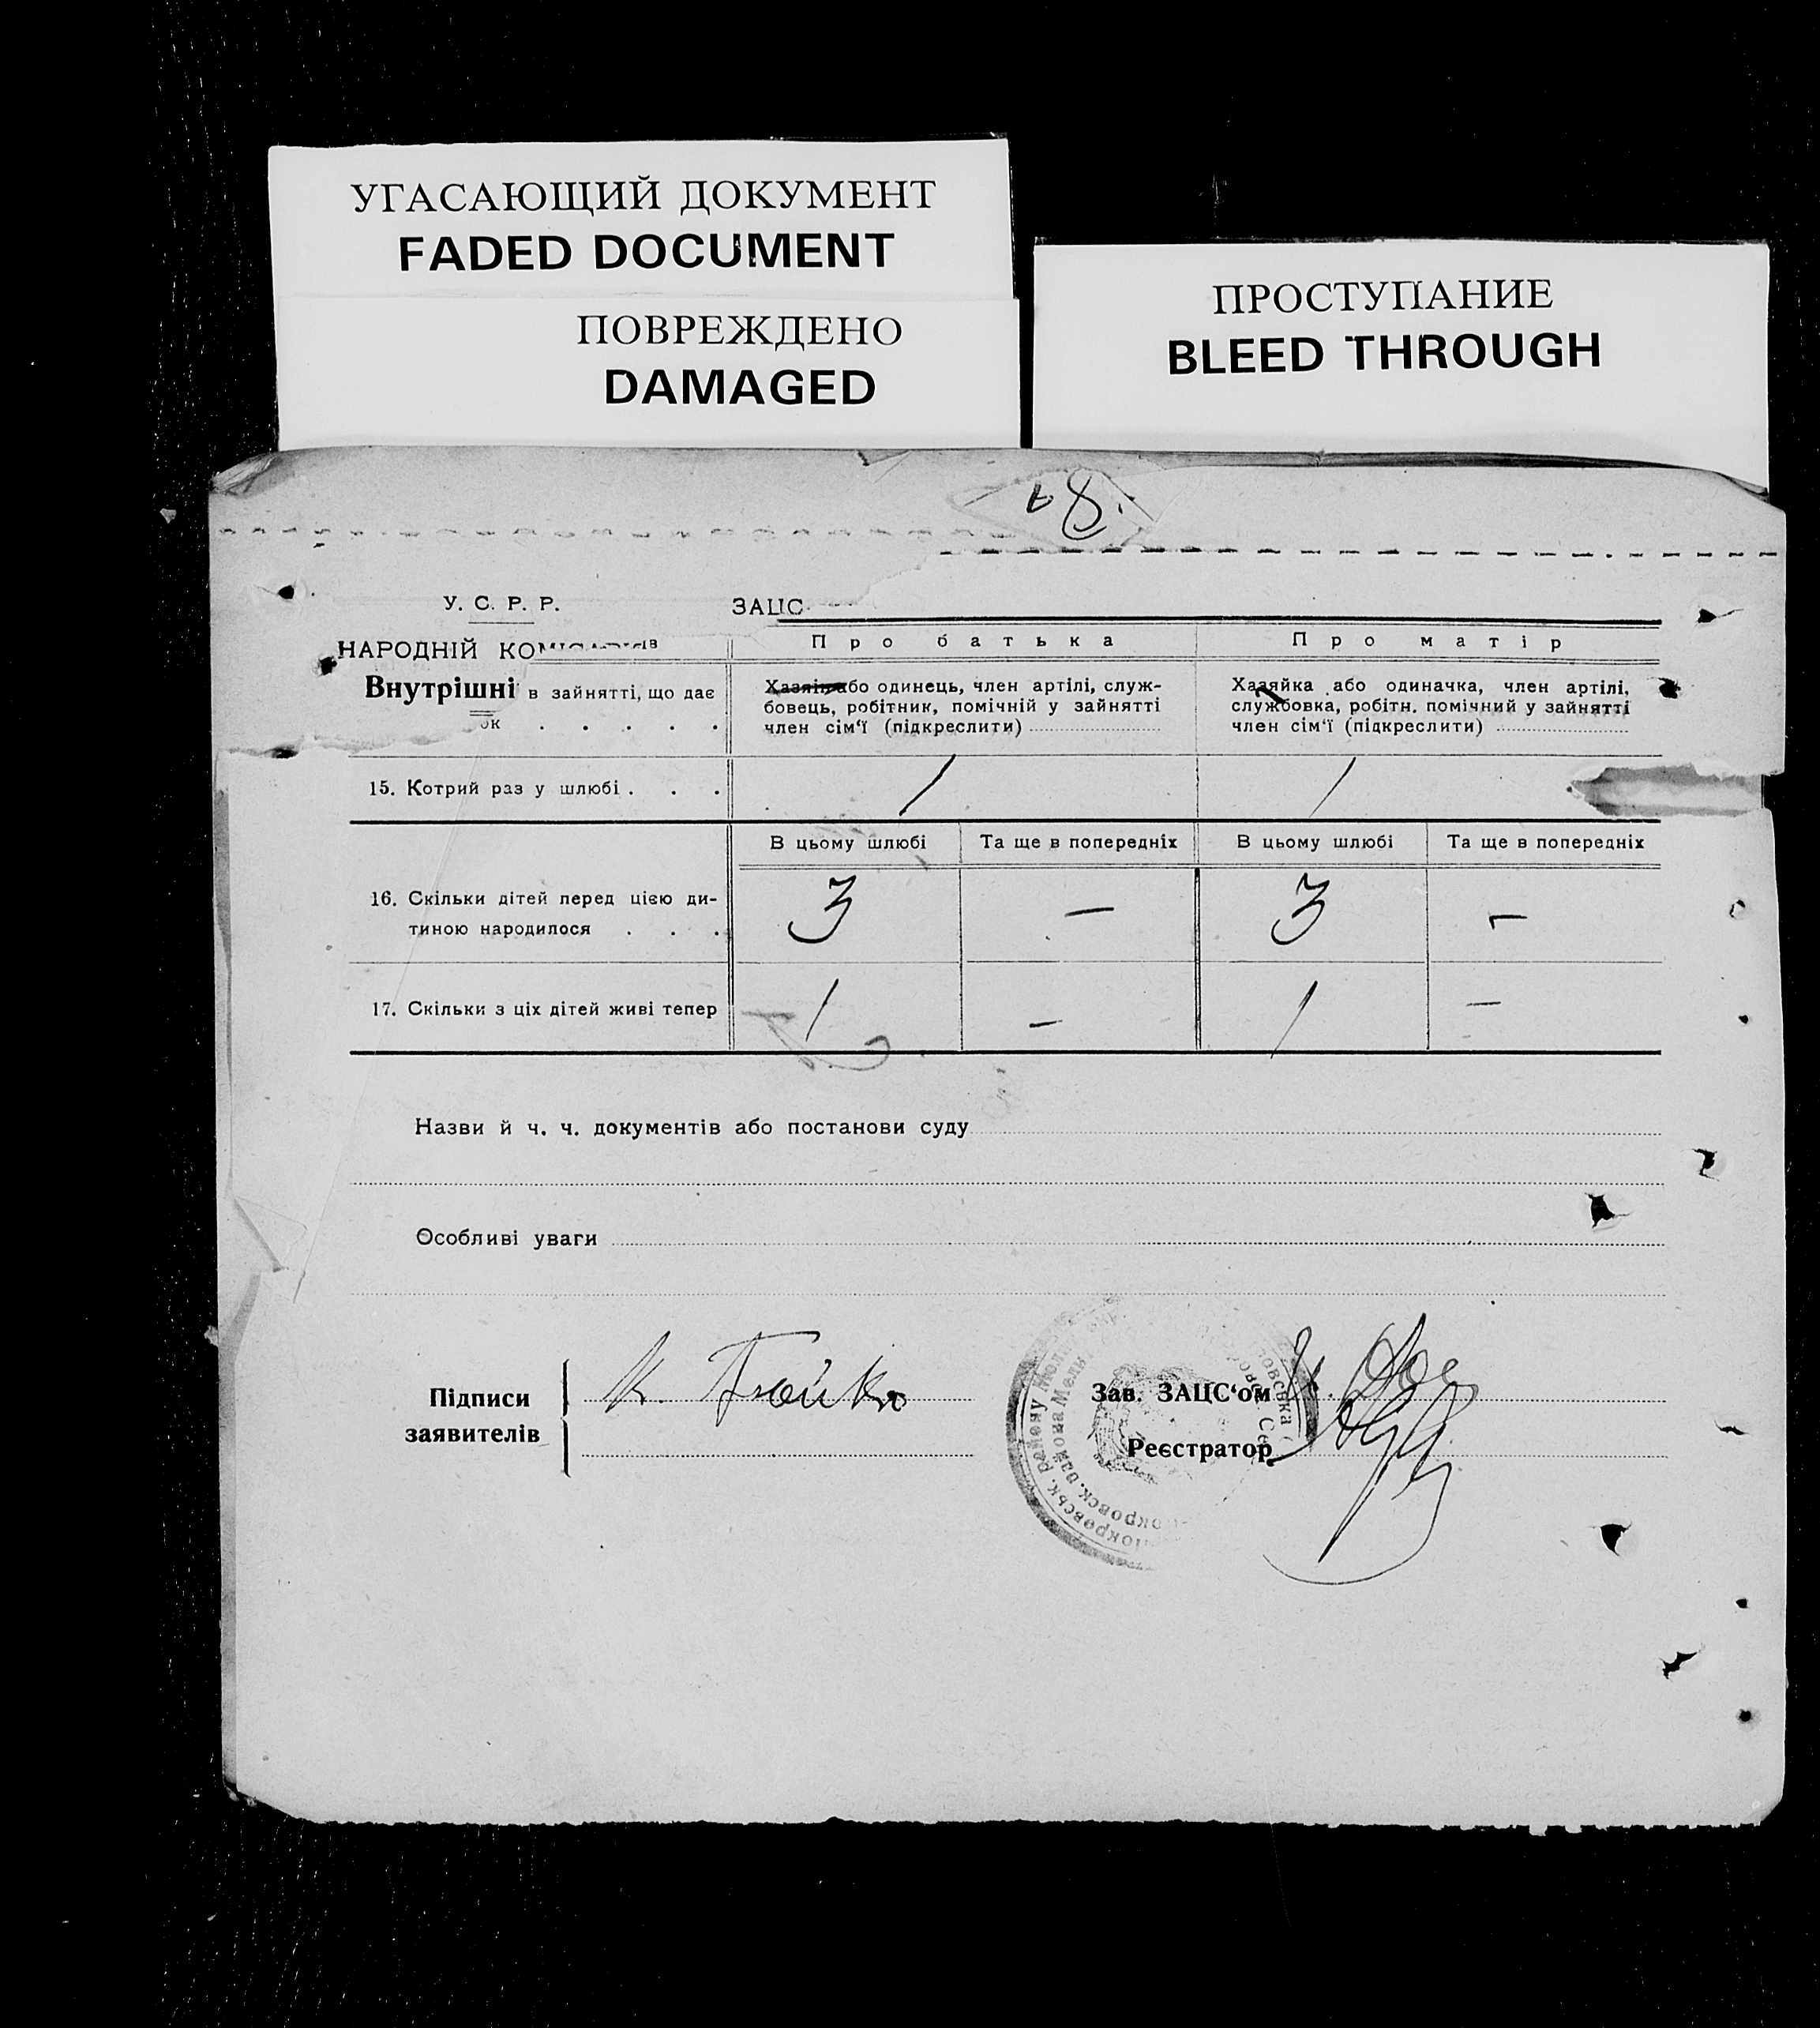 УГАСАЮЩИЙ ДОКУМЕНТ
FADED DOCUMENT
ПОВРЕЖДЕНО
DAMAGED
ПРОСТУПАНИЕ
BLEED THROUGH
8.
У. С. Р. Р.
ЗАЦС
НАРОДНІЙ
Про батька
Про матір
Внутрішні в зайнятті, що дає
ок . . . . .
Хазяїн або одинець, член артілі, служ-
бовець, робітник, помічній у зайнятті
член сім'ї (підкреслити)
Хазяйка або одиначка, член артілі,
службовка, робітн. помічний у зайнятті
член сім'ї (підкреслити)
15. Котрий раз у шлюбі . . .
1
1
В цьому шлюбі
Та ще в попередніх
В цьому шлюбі
Та ще в попередніх
16. Скільки дітей перед цією ди-
тиною народилося . . .
3
—
3
—
17. Скільки з ціх дітей живі тепер
1
—
1
—
Назви й ч. ч. документів або постанови суду
Особливі уваги
Підписи
заявителів
К. Бойко
Зав. ЗАЦС'ом
Реєстратор